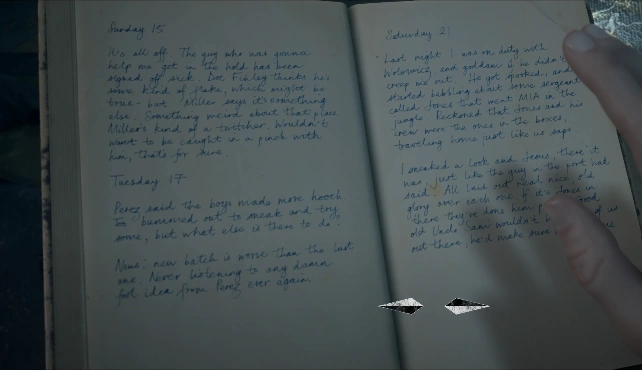 Sunday 15
It's all off. The guy who was gonna
help me get in the hold has been
signed off sick. Doc Finley thinks he's
some kind of flake, which might be
true - but Miller says it's something
else. Something weird about that place
Miller's kind of a twitcher. Wouldn't
want to be caught in a pinch with
him, that's for sure.
Tuesday 17
Perez said the boys made more hooch
I'm bummed out to sneak and try
some, but what else is there to do?
New batch is worse than the last
one. Never listening to any damn
fool idea from Perez ever again
Saturday 21
Last night I was on duty with
and goddam if he didn't
creep me out. He got spooked, and
started babbling about some sergeant
called Jones that went MIA in the
jungle. Reckoned that Jones and his
crew were the ones in the boxes,
travelling home just like us saps
I sneaked a look and Jesus, there it
was, just like the guy in the port had
said. All laid out neat, nice, old
glory over each one. If it's Jones in
there they've done him good
old Uncle Sam wouldn't of us
out there, he'd make sure